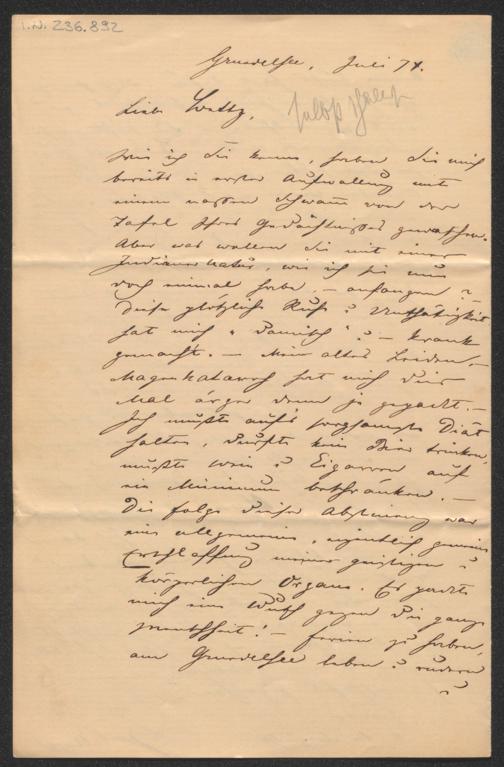 I.N. 236.892
Grundelsee, Juli 74.
Liebe Wattz,
Wie ich Sie kenne, haben Sie mich
bereits in erster Aufwallung mit
einem nassen Schwam̄ von der
Tafel Ihres Gedächtnisses gewaschen.
Aber was wollen Sie mit einer
Indianernatur, wie ich sie nun
doch einmal habe, – anfangen?
Diese plötzliche Ruhe u Unthätigkeit
hat mich " " – krank
gemacht. – Mein altes Leiden –
Magenkatarrh hat mich dies
Mal ärger denn je gepackt. –
Ich mußte aufs sorgsamste Diät
halten, durfte kein Bier trinken,
mußte Wein u Cigarren auf
ein Minimum beschränken. –
Die Folge dieser Abstinenz war
eine allgemeine, eigentlich gemeine
Erschlaffung meiner geistigen u
körperlichen Organe. Es packte
mich eine Wuth gegen die ganze
Menschheit! – Ferien zu haben,
am Grundelsee leben u rudern
u